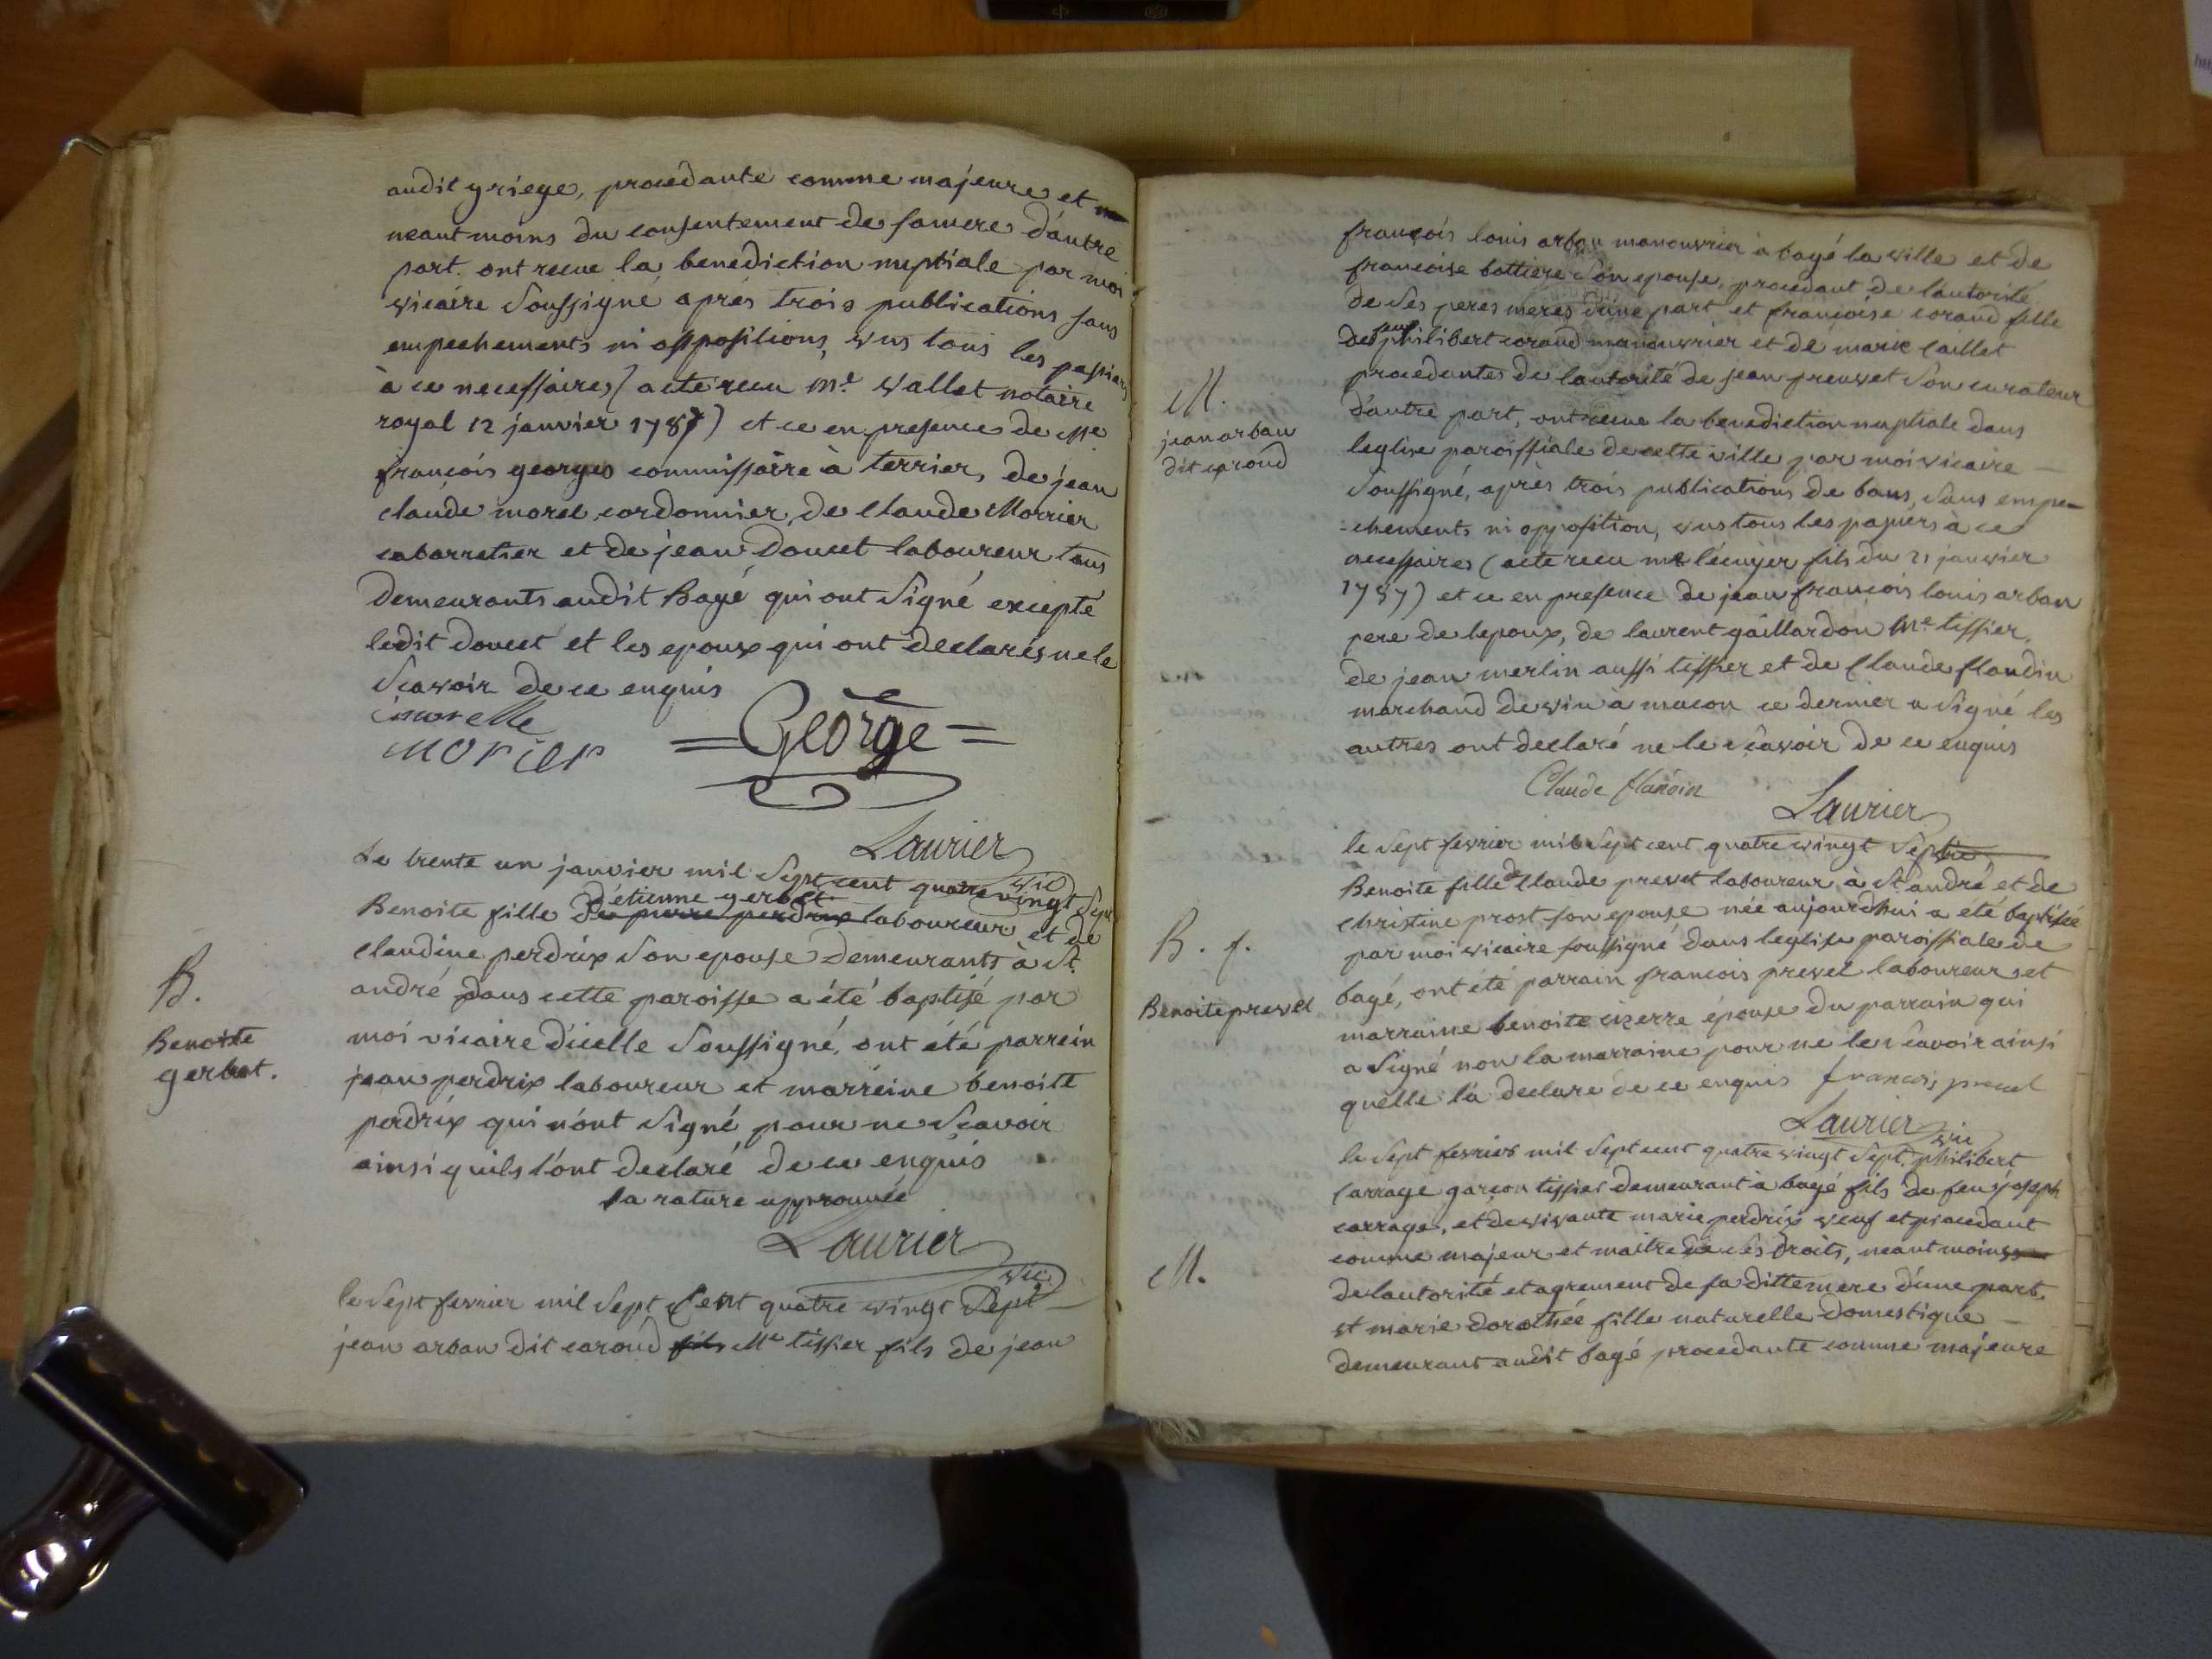 audit griege, procedante comme majeure et
neantmoins du consentement de samere d'autre
part. ont recue la benediction nuptiale par moi
vicaire Soussigné aprés trois publications sans
empechements ni oppositions, vus tous les papiers
à ce necessaires (acte recu Me vallet notaire
royal 12 janvier 1787) et ce en presence de Me
françois georges commissaire à terrier, de jean
claude morel cordonnier, de claude Morrier
cabarretier et de jean Doucet laboureur tous
demeurants audit Bagé qui ont Signé excepté
ledit doucet et les epoux qui ont declarés ne le
Scavoir de ce enquis
morelle
morier
= George =
Laurier
vic
Le trente un janvier mil Sept cent quatre vingt Sept
d'etienne gerbet
Benoite fille de pierre perdrix laboureur et de
claudine perdrix Son epouse demeurants à St.
andré dans cette paroisse a été baptisé par
moi vicaire d'icelle Soussigné, ont été parrein
jean perdrix laboureur et marreine benoite
perdrix qui n'ont Signé pour ne Scavoir
ainsi quils l'ont declaré de ce enquis
la rature approuvée
Laurier
vic
B.
Benoite
gerbet.
le Sept fevrier mil Sept Cent quatre vingt Sept
jean arban dit caroud fils Me tissier fils de jean
M.
jean arban
dit caroud
françois louis arban manouvrier à bagé la ville et de
francoise bottiere Son epouse, procedant de l'autorité
de Ses peres meres d'une part et françoise corand fille
feu
de philibert corand manouvrier et de marie caillet
procedante de l'autorité de jean preuvet Son curateur
d'autre part, ont recue la benediction nuptiale dans
leglise paroissiale de cette ville par moi vicaire
Soussigné, après trois publications de bans, Sans empe-
-chements ni opposition, vus tous les papiers à ce
necessaires (acte recu me lécuyer fils du 21 janvier
1787) et ce en presence de jean françois louis arban
pere de lepoux, de laurent gaillardon Me tissier,
de jean merlin aussi tissier et de Claude flandin
marchand de vin à macon ce dernier a Signé les
autres ont declaré ne le Scavoir de ce enquis
Claude flandin
Laurier
B. f.
Benoite prevel
le Sept fevrier mil Sept cent quatre vingt Sept
Benoite fille de Claude prevet laboureur à St. andré et de
christine prost son epouse née aujourdhui a été baptisée
par moi vicaire soussigné dans leglise paroissiale de
bagé, ont été parrain francois prevel laboureur et
marraine benoite cizerre épouse du parrain qui
a Signé non la marraine pour ne le Scavoir ainsi
quelle la declare de ce enquis francois prevel
Laurier vic
M.
le Sept fevrier mil Sept cent quatre vingt Sept. philibert
carrage garcon tissier demeurant à bagé fils de feu joseph
carrage, et de vivante marie perdrix veuf et procedant
comme majeur et maitre de Ses droits, neantmoins
de lautorité et agrement de sa ditte mere d'une part.
et marie dorothée fille naturelle domestique
demeurant audit bagé procedante comme majeure